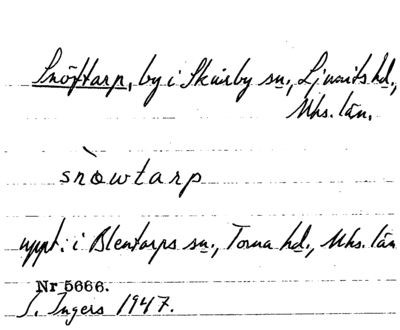 Snöftarp, by i Skårby sn., Ljunits hd.,
Mhs. län.
snòwtarp
uppt. i Blentarps sn., Torna hd., Mhs. län
Nr 5666.
I. Ingers 1947.